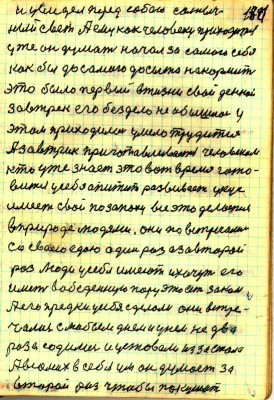 и увидел перед собою солныч-
ный свет А ему как человеку приходится
уже он думать начал за самого себя
как бы до самого досыта накормить
это было первый в жизни свой денной
завтрак его без дело не
этом приходился умело трудится
А завтрак приготавливает человеком
кто уже знает это вот время гото-
вит и у себя апитит развивает уже
имеет свой по запаху все это делается
в природе людями, они то встречали
со своею едою один раз а за второй
раз люди у себя имеют и хочут его
иметь в обеденную пору это есть закон
А его предки у себя сделали они встре-
чались с таким днем и у них не два
раза садились и устовали из за стола
А в самих в себя ум он думает за
второй раз чтобы покушать